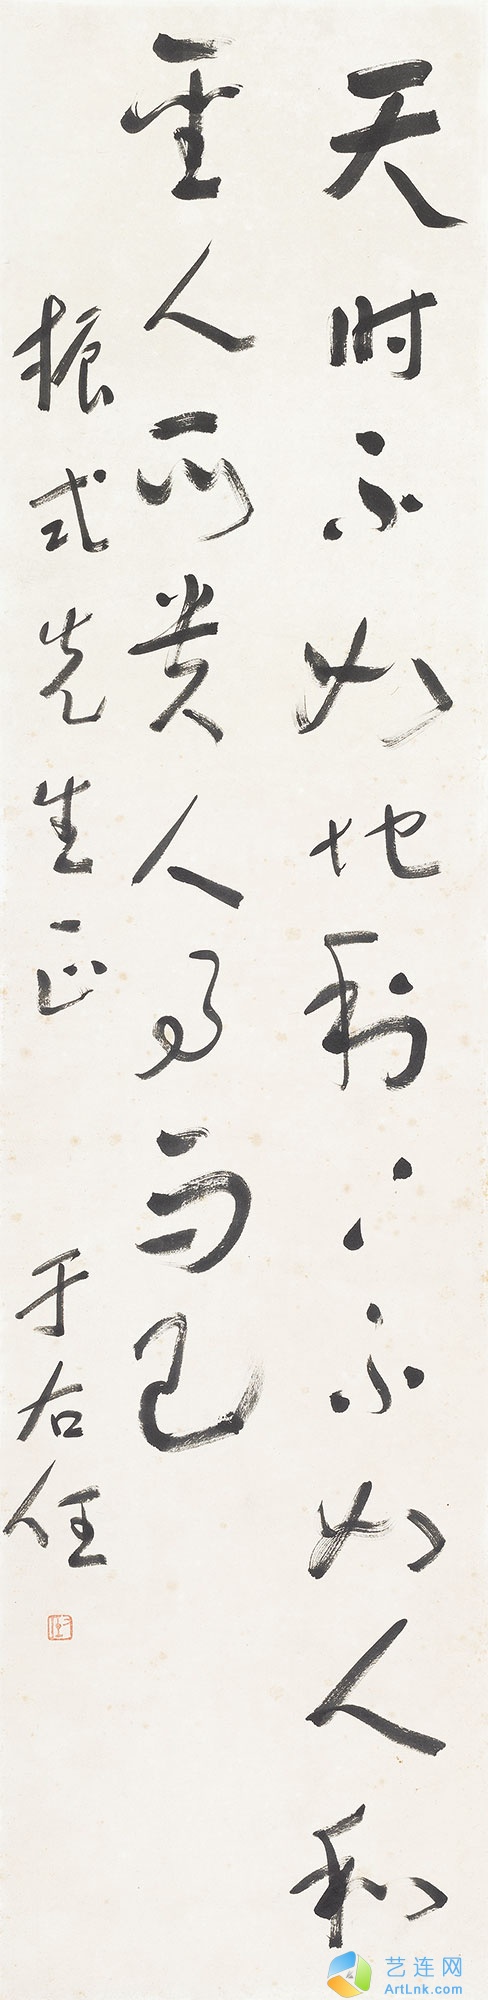 天时不如地利〻不如人和
圣人所贵人事而已
振式先生正 于右任
右任
艺连网
ArtLnk.com